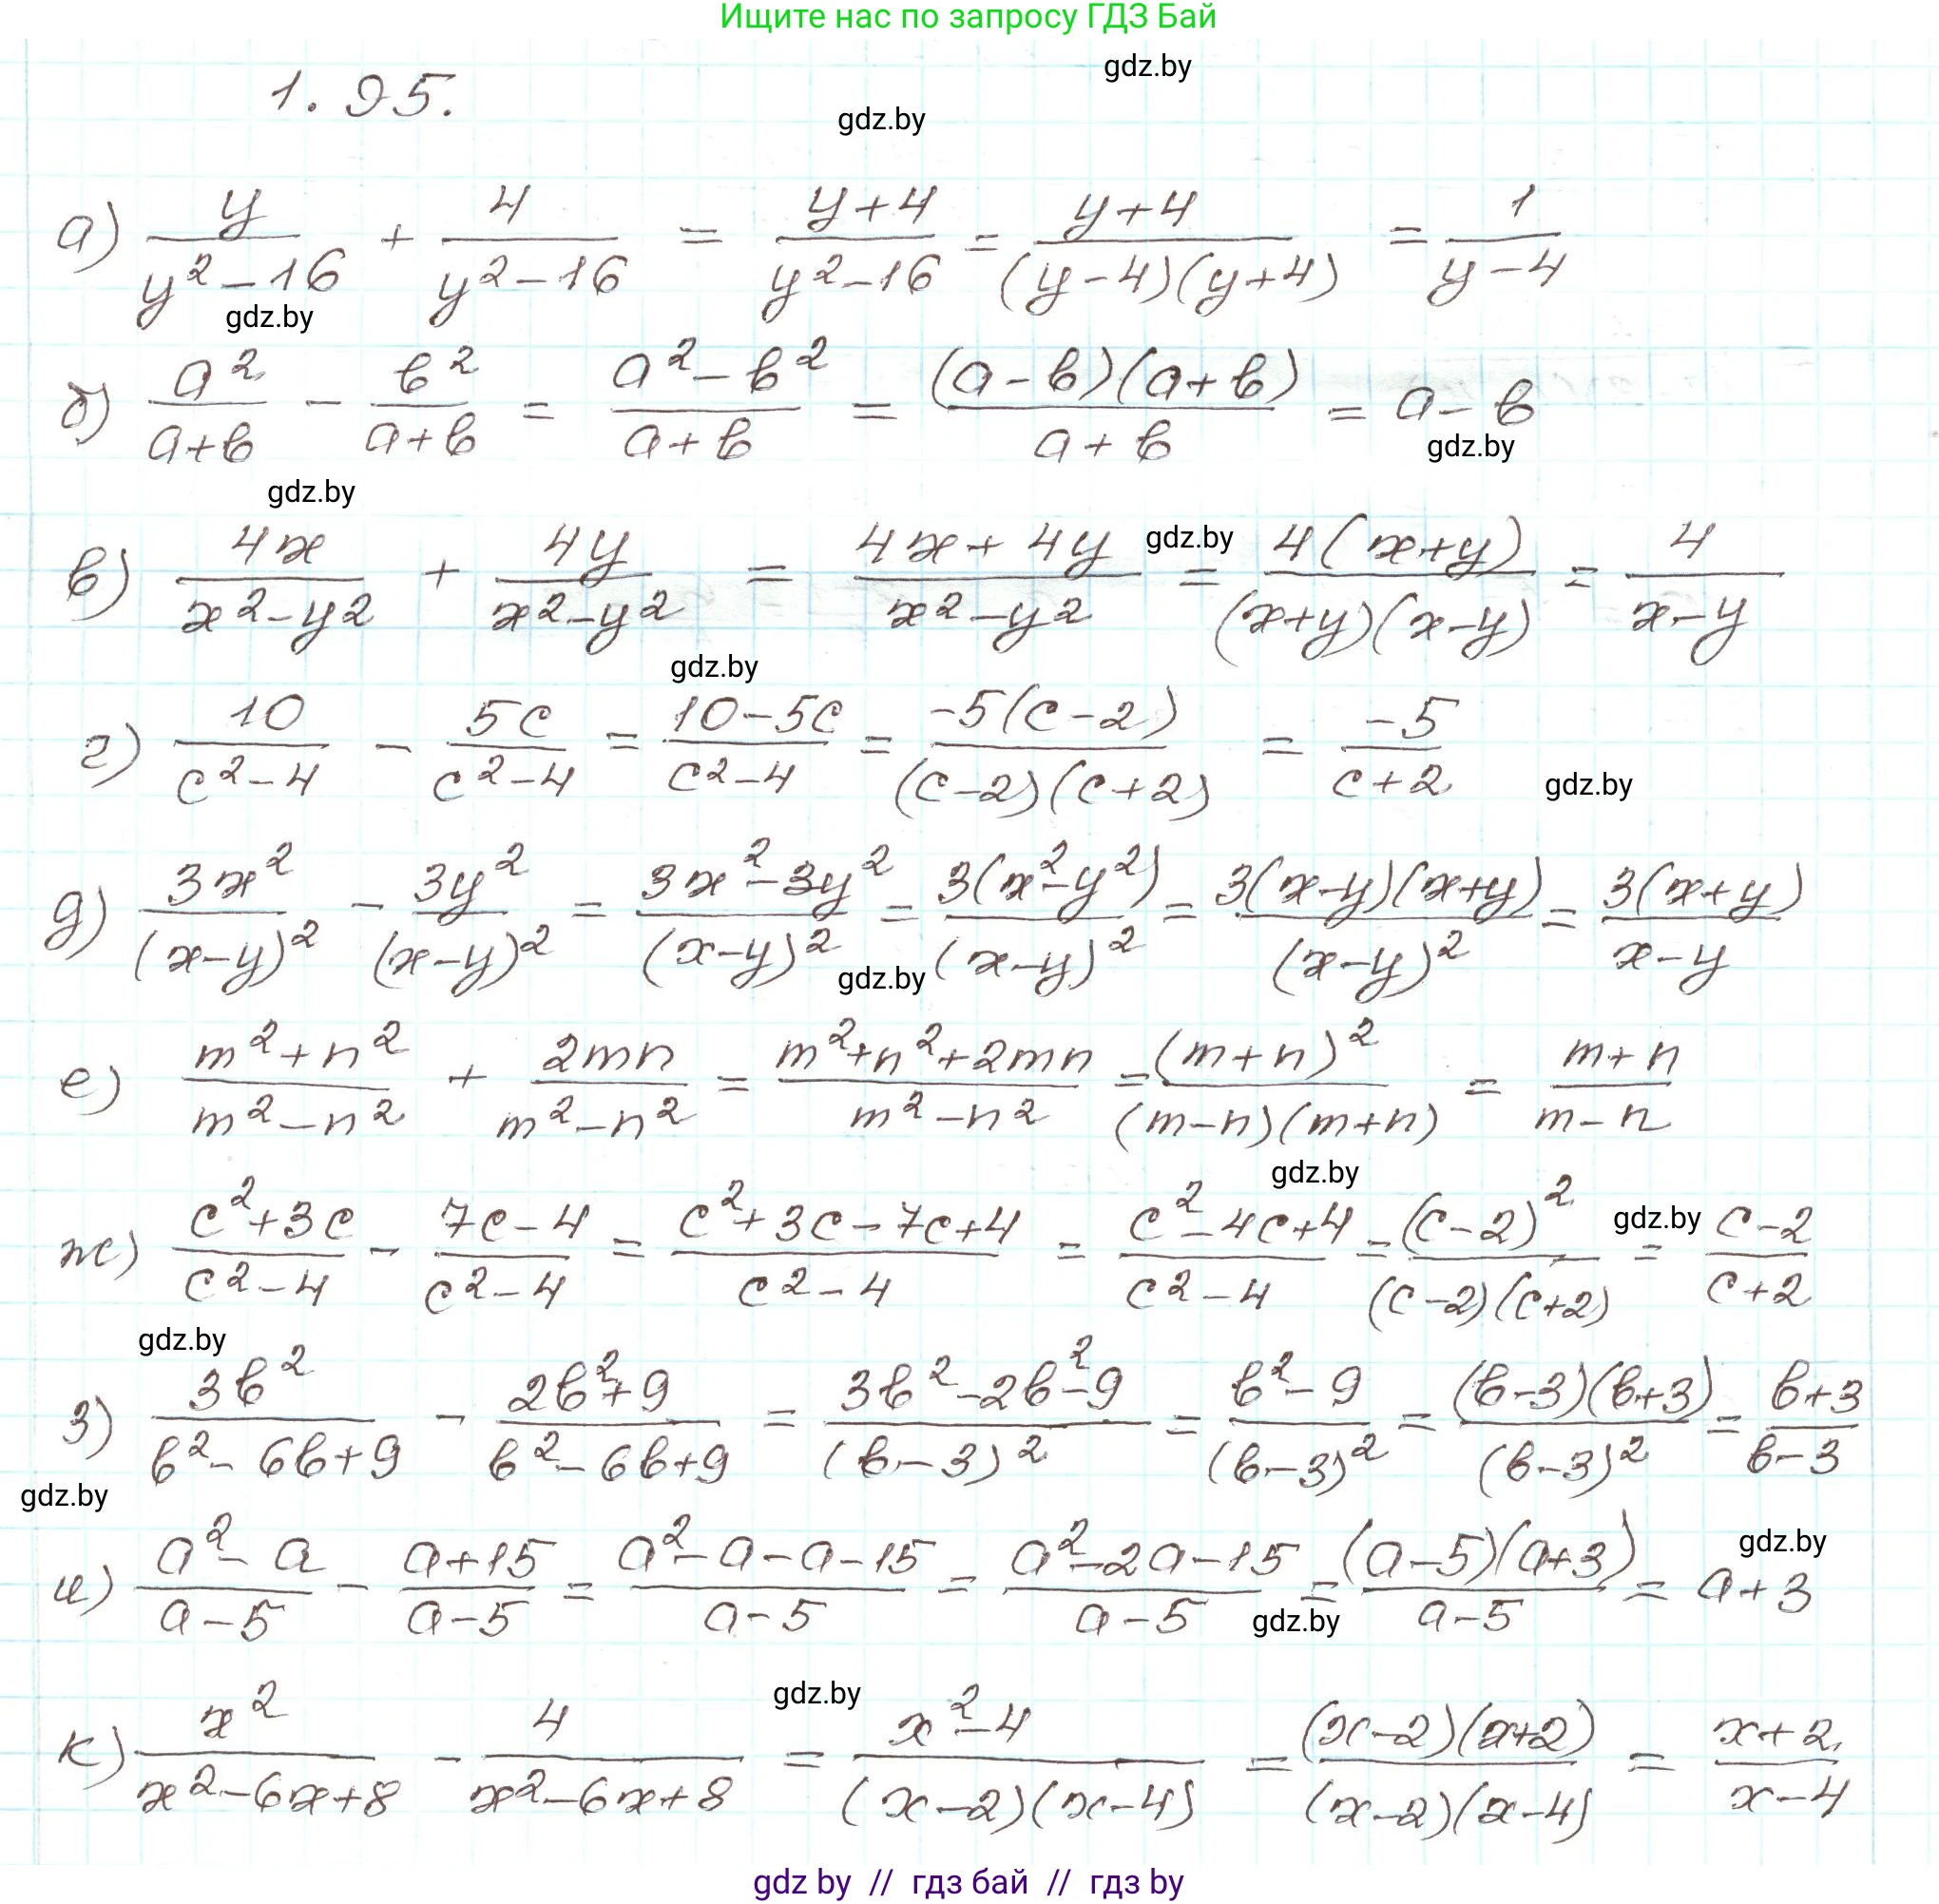 Ищите нас по запросу ГДЗ Бай
gdz.by
1.95.
gdz.by
а) y/(y²-16) + 4/(y²-16) = (y+4)/(y²-16) = (y+4)/((y-4)(y+4)) = 1/(y-4)
gdz.by
б) a²/(a+b) - b²/(a+b) = (a²-b²)/(a+b) = ((a-b)(a+b))/(a+b) = a-b
gdz.by
gdz.by
в) 4x/(x²-y²) + 4y/(x²-y²) = (4x+4y)/(x²-y²) = (4(x+y))/((x+y)(x-y)) = 4/(x-y)
gdz.by
gdz.by
г) 10/(c²-4) - 5c/(c²-4) = (10-5c)/(c²-4) = (-5(c-2))/((c-2)(c+2)) = -5/(c+2)
gdz.by
д) 3x²/(x-y)² - 3y²/(x-y)² = (3x²-3y²)/(x-y)² = (3(x²-y²))/(x-y)² = (3(x-y)(x+y))/(x-y)² = (3(x+y))/(x-y)
gdz.by
е) (m²+n²)/(m²-n²) + 2mn/(m²-n²) = (m²+n²+2mn)/(m²-n²) = (m+n)²/((m-n)(m+n)) = (m+n)/(m-n)
gdz.by
ж) (c²+3c)/(c²-4) - (7c-4)/(c²-4) = (c²+3c-7c+4)/(c²-4) = (c²-4c+4)/(c²-4) = (c-2)²/((c-2)(c+2)) = (c-2)/(c+2)
gdz.by
gdz.by
з) 3b²/(b²-6b+9) - (2b²+9)/(b²-6b+9) = (3b²-2b²-9)/(b-3)² = (b²-9)/(b-3)² = ((b-3)(b+3))/(b-3)² = (b+3)/(b-3)
gdz.by
gdz.by
и) (a²-a)/(a-5) - (a+15)/(a-5) = (a²-a-a-15)/(a-5) = (a²-2a-15)/(a-5) = ((a-5)(a+3))/(a-5) = a+3
gdz.by
gdz.by
к) x²/(x²-6x+8) - 4/(x²-6x+8) = (x²-4)/((x-2)(x-4)) = ((x-2)(x+2))/((x-2)(x-4)) = (x+2)/(x-4)
gdz by // гдз бай // гдз by